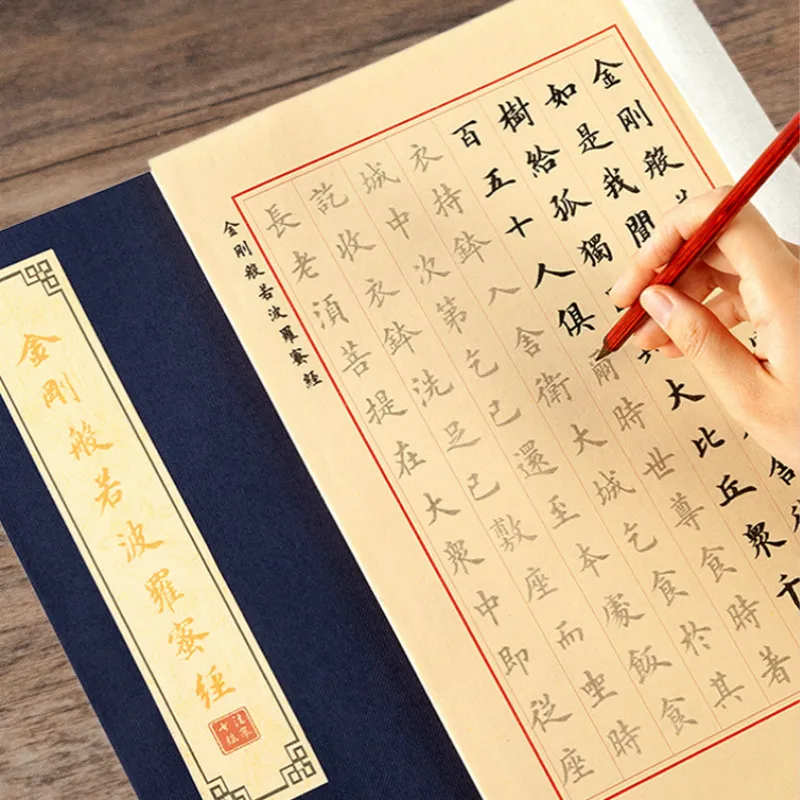 金剛般
如是我聞
樹給孤獨
大比丘眾千
百五十人俱爾時世尊食時著
衣持鉢入舍衛大城乞食於其
城中次第乞已還至本處飯食
訖收衣鉢洗足已敷座而坐時
長老湏菩提在大眾中即從座
金剛般若波羅蜜經
金剛般若波羅蜜經